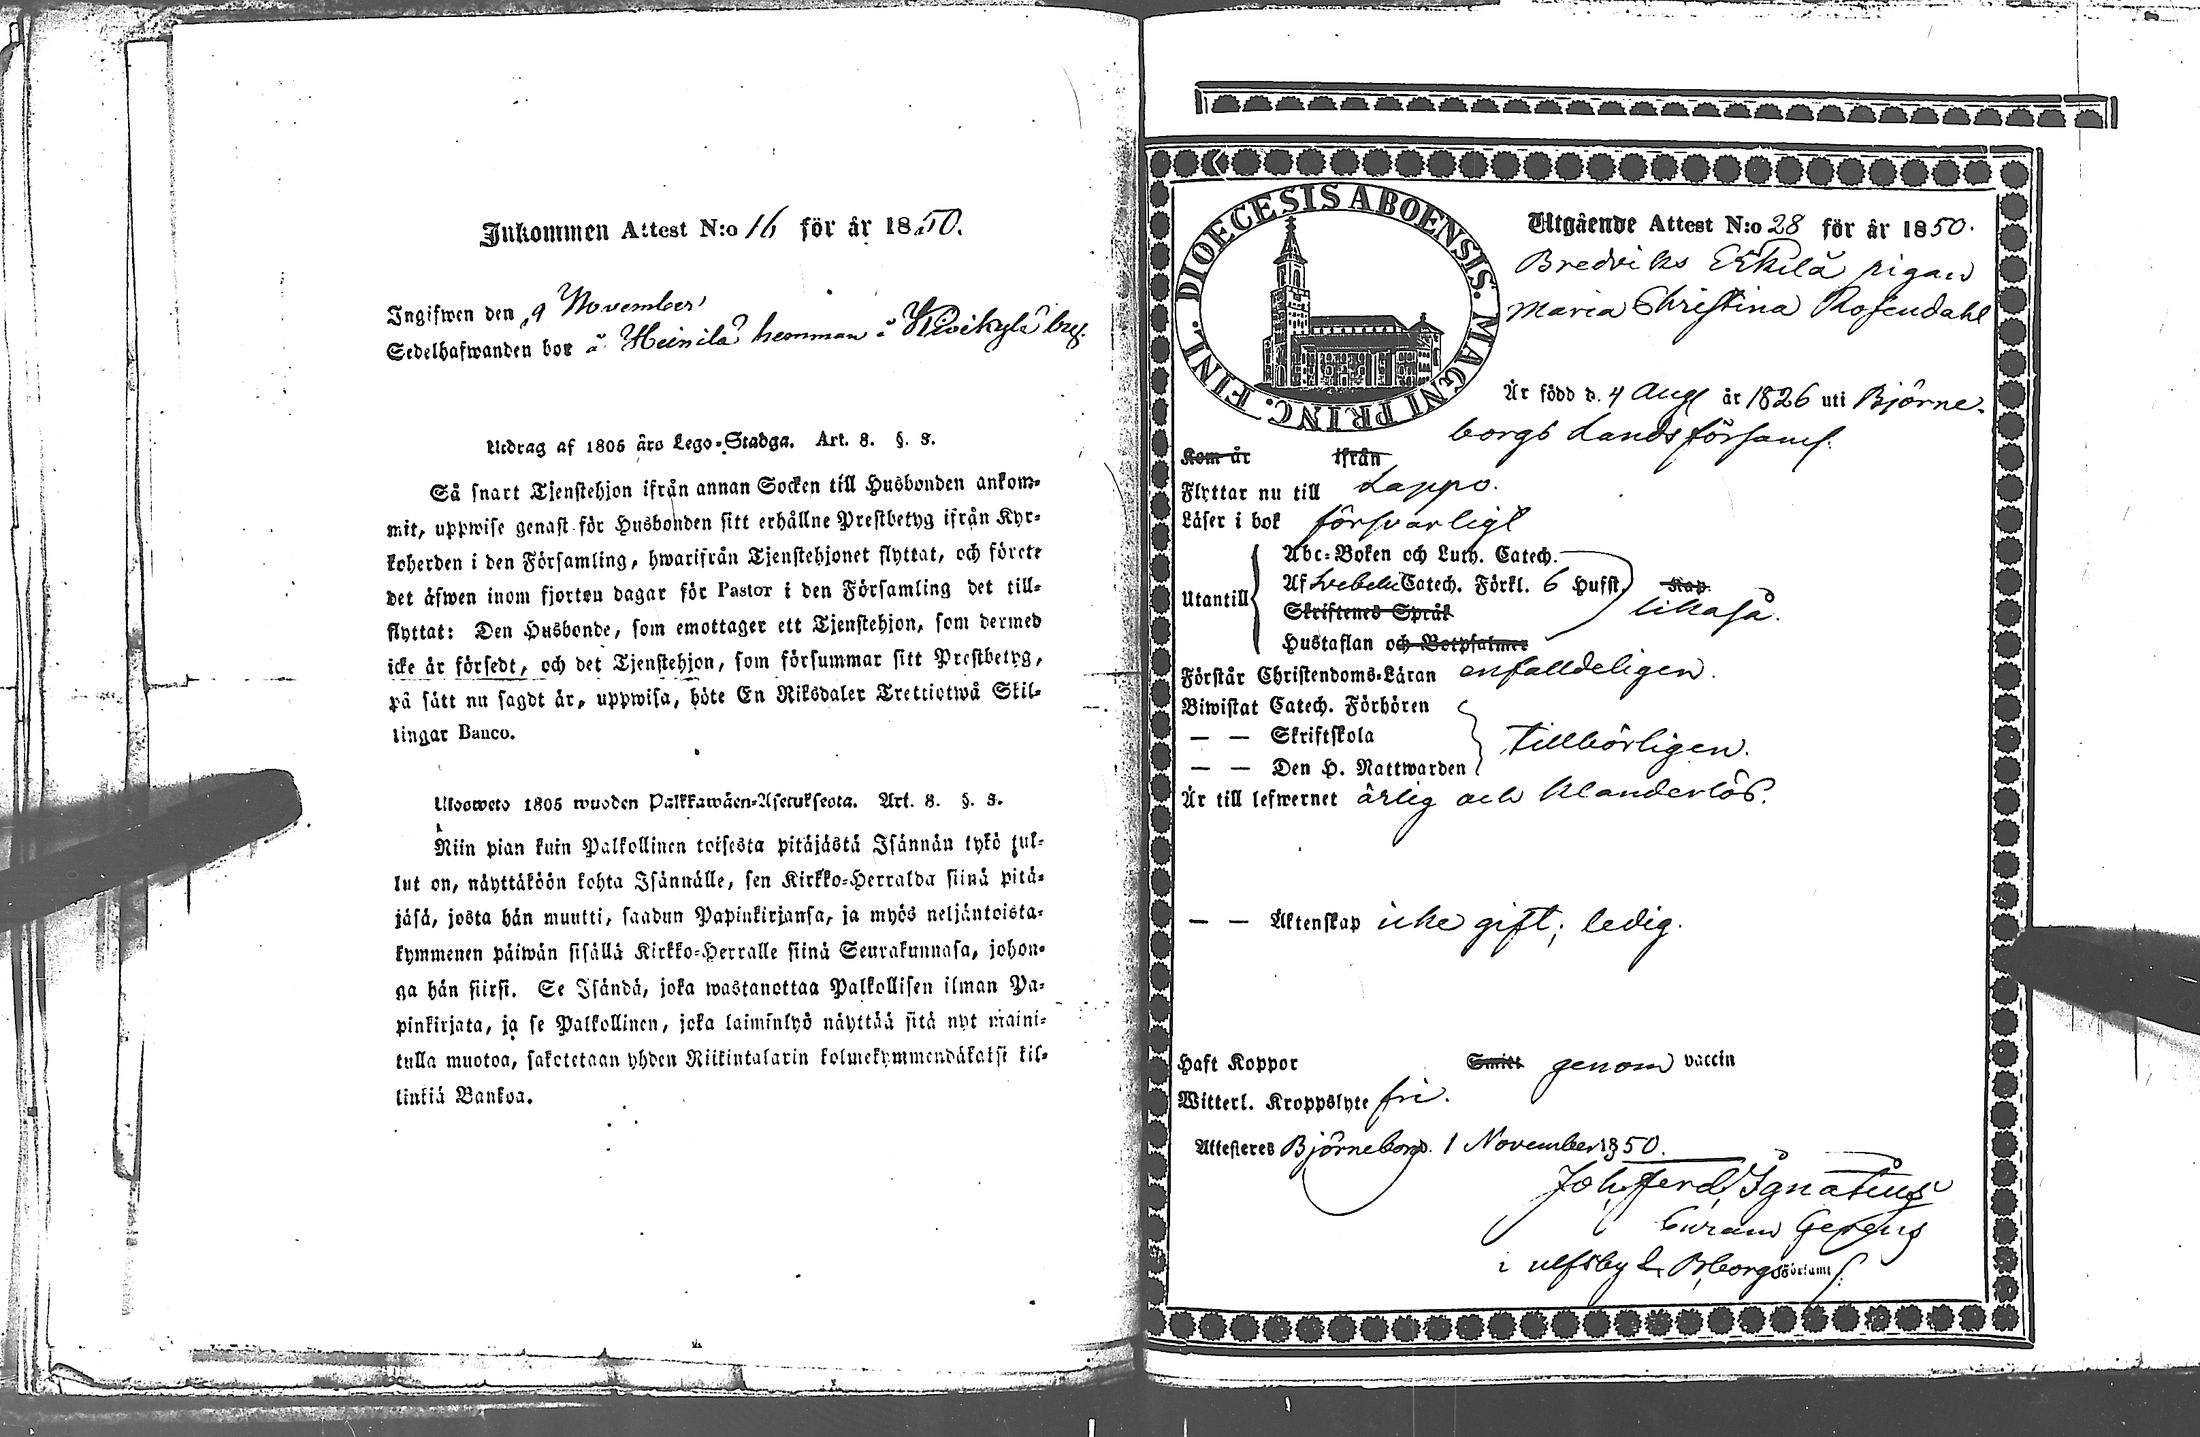 Inkommen Attest N:o 16 för år 1850.
Ingifwen den 9 November
Sedelhafwanden bor å Heinilä hemman i
Utdrag af 1805 års Lego-Stadga. Art. 8. §. 3.
Så snart Tjenstehjon ifrån annan Socken till Husbonden ankom-
mit, uppwise genast för Husbonden sitt erhållne Prestbetyg ifrån Kyr-
koherden i den Församling, hwarifrån Tjenstehjonet flyttat, och förete
det äfwen inom fjorton dagar för Pastor i den Församling det till-
flyttat: Den Husbonde, som emottager ett Tjenstehjon, som dermed
icke är försedt, och det Tjenstehjon, som försummar sitt Prestbetyg,
på sätt nu sagdt är, uppwisa, böte En Riksdaler Trettiotwå Skil-
lingar Banco.
Ulosweto 1805 wuoden Palkkawäen-Asetuksesta. Art. 8. §. 3.
Niin pian kuin Palkollinen toisesta pitäjästä Isännän tykö tul-
lut on, näyttäköön kohta Isännälle, sen Kirkko-Herralda siinä pitä-
jäsä, josta hän muutti, saadun Papinkirjansa, ja myös neljäntoista-
kymmenen päiwän sisällä Kirkko-Herralle siinä Seurakunnasa, johon-
ga hän siirsi. Se Isändä, joka wastanottaa Palkollisen ilman Pa-
pinkirjata, ja se Palkollinen, joka laiminlyö näyttää sitä nyt maini-
tulla muotoa, sakotetaan yhden Riikintalarin kolmekymmendäkaksi kil-
linkiä Bankoa.
DIOECESIS ABOENSIS. MAGNI PRINC. FINL.
Utgående Attest N:o 28 för år 1850.
Bredviks Erkilä pigan
Maria Christina Rosendahl
Är född d. 4 Aug är 1826 uti Björne-
borgs Landsförsaml.
Kom är ifrån
Flyttar nu till Lappo.
Läser i bok försvarligt
Utantill
Abc-Boken och Luth. Catech.
Af Svebelii Catech. Förkl. 6 Hufst. Kap.
likaså.
Skriftenes Språk
Hustaflan och Botpsalmer
Förstår Christendoms-Läran enfalldeligen.
Biwistat Catech. Förhören
— — Skriftskola tillbörligen.
— — Den H. Nattwarden
Är till lefwernet ärlig och klanderlös.
— — Äktenskap icke gift; ledig.
Haft Koppor Smitt genom vaccin
Witterl. Kroppslyte fri.
Attesteras Björneborg d. 1 November 1850.
Joh. Ferd. Ignatius
Curam Gerens
i Ulfsby & Bborgs Församl.